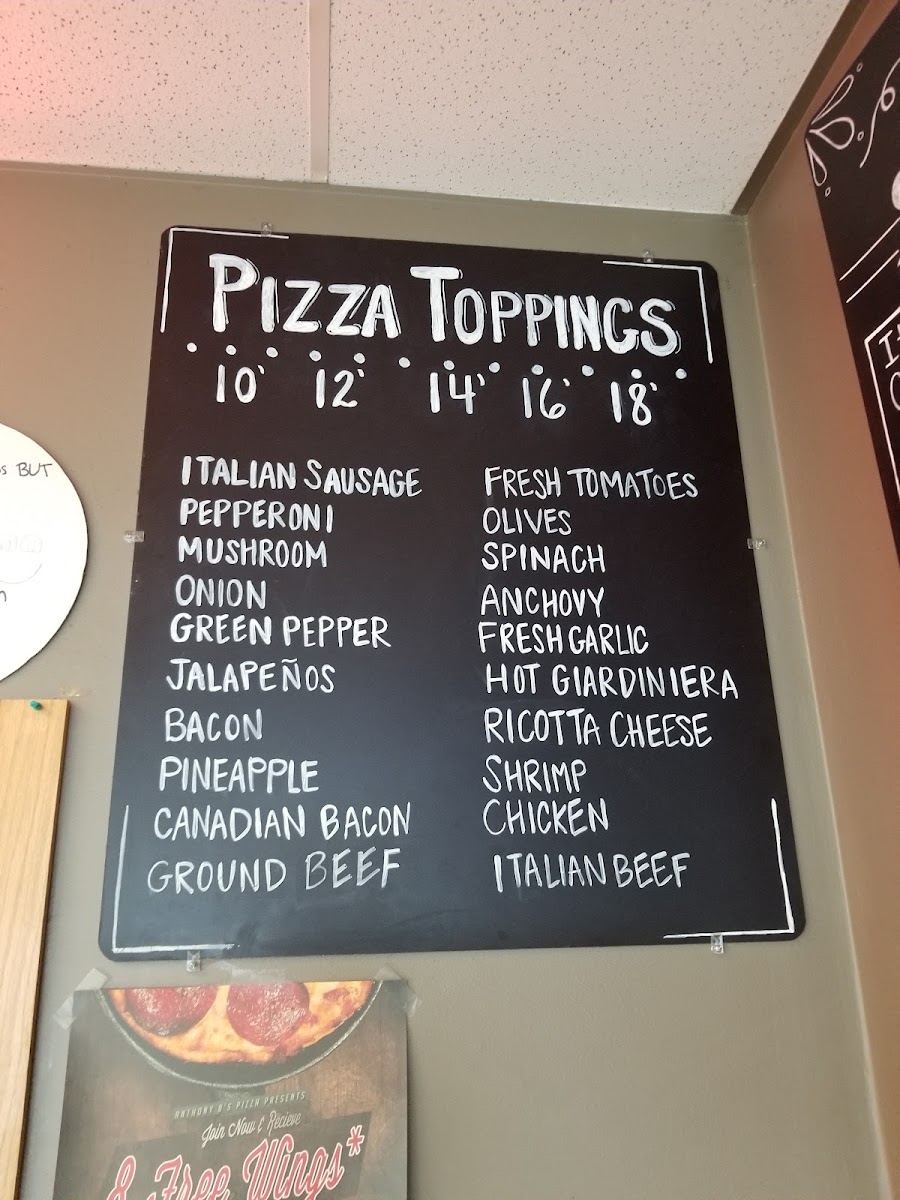 PIZZA TOPPINGS
10' 12' 14' 16' 18'
ITALIAN SAUSAGE
PEPPERONI
MUSHROOM
ONION
GREEN PEPPER
JALAPEÑOS
BACON
PINEAPPLE
CANADIAN BACON
GROUND BEEF
FRESH TOMATOES
OLIVES
SPINACH
ANCHOVY
FRESH GARLIC
HOT GIARDINIERA
RICOTTA CHEESE
SHRIMP
CHICKEN
ITALIAN BEEF
BUT
ANTHONY B'S PIZZA PRESENTS
Join Now & Recieve
8 Free Wings*